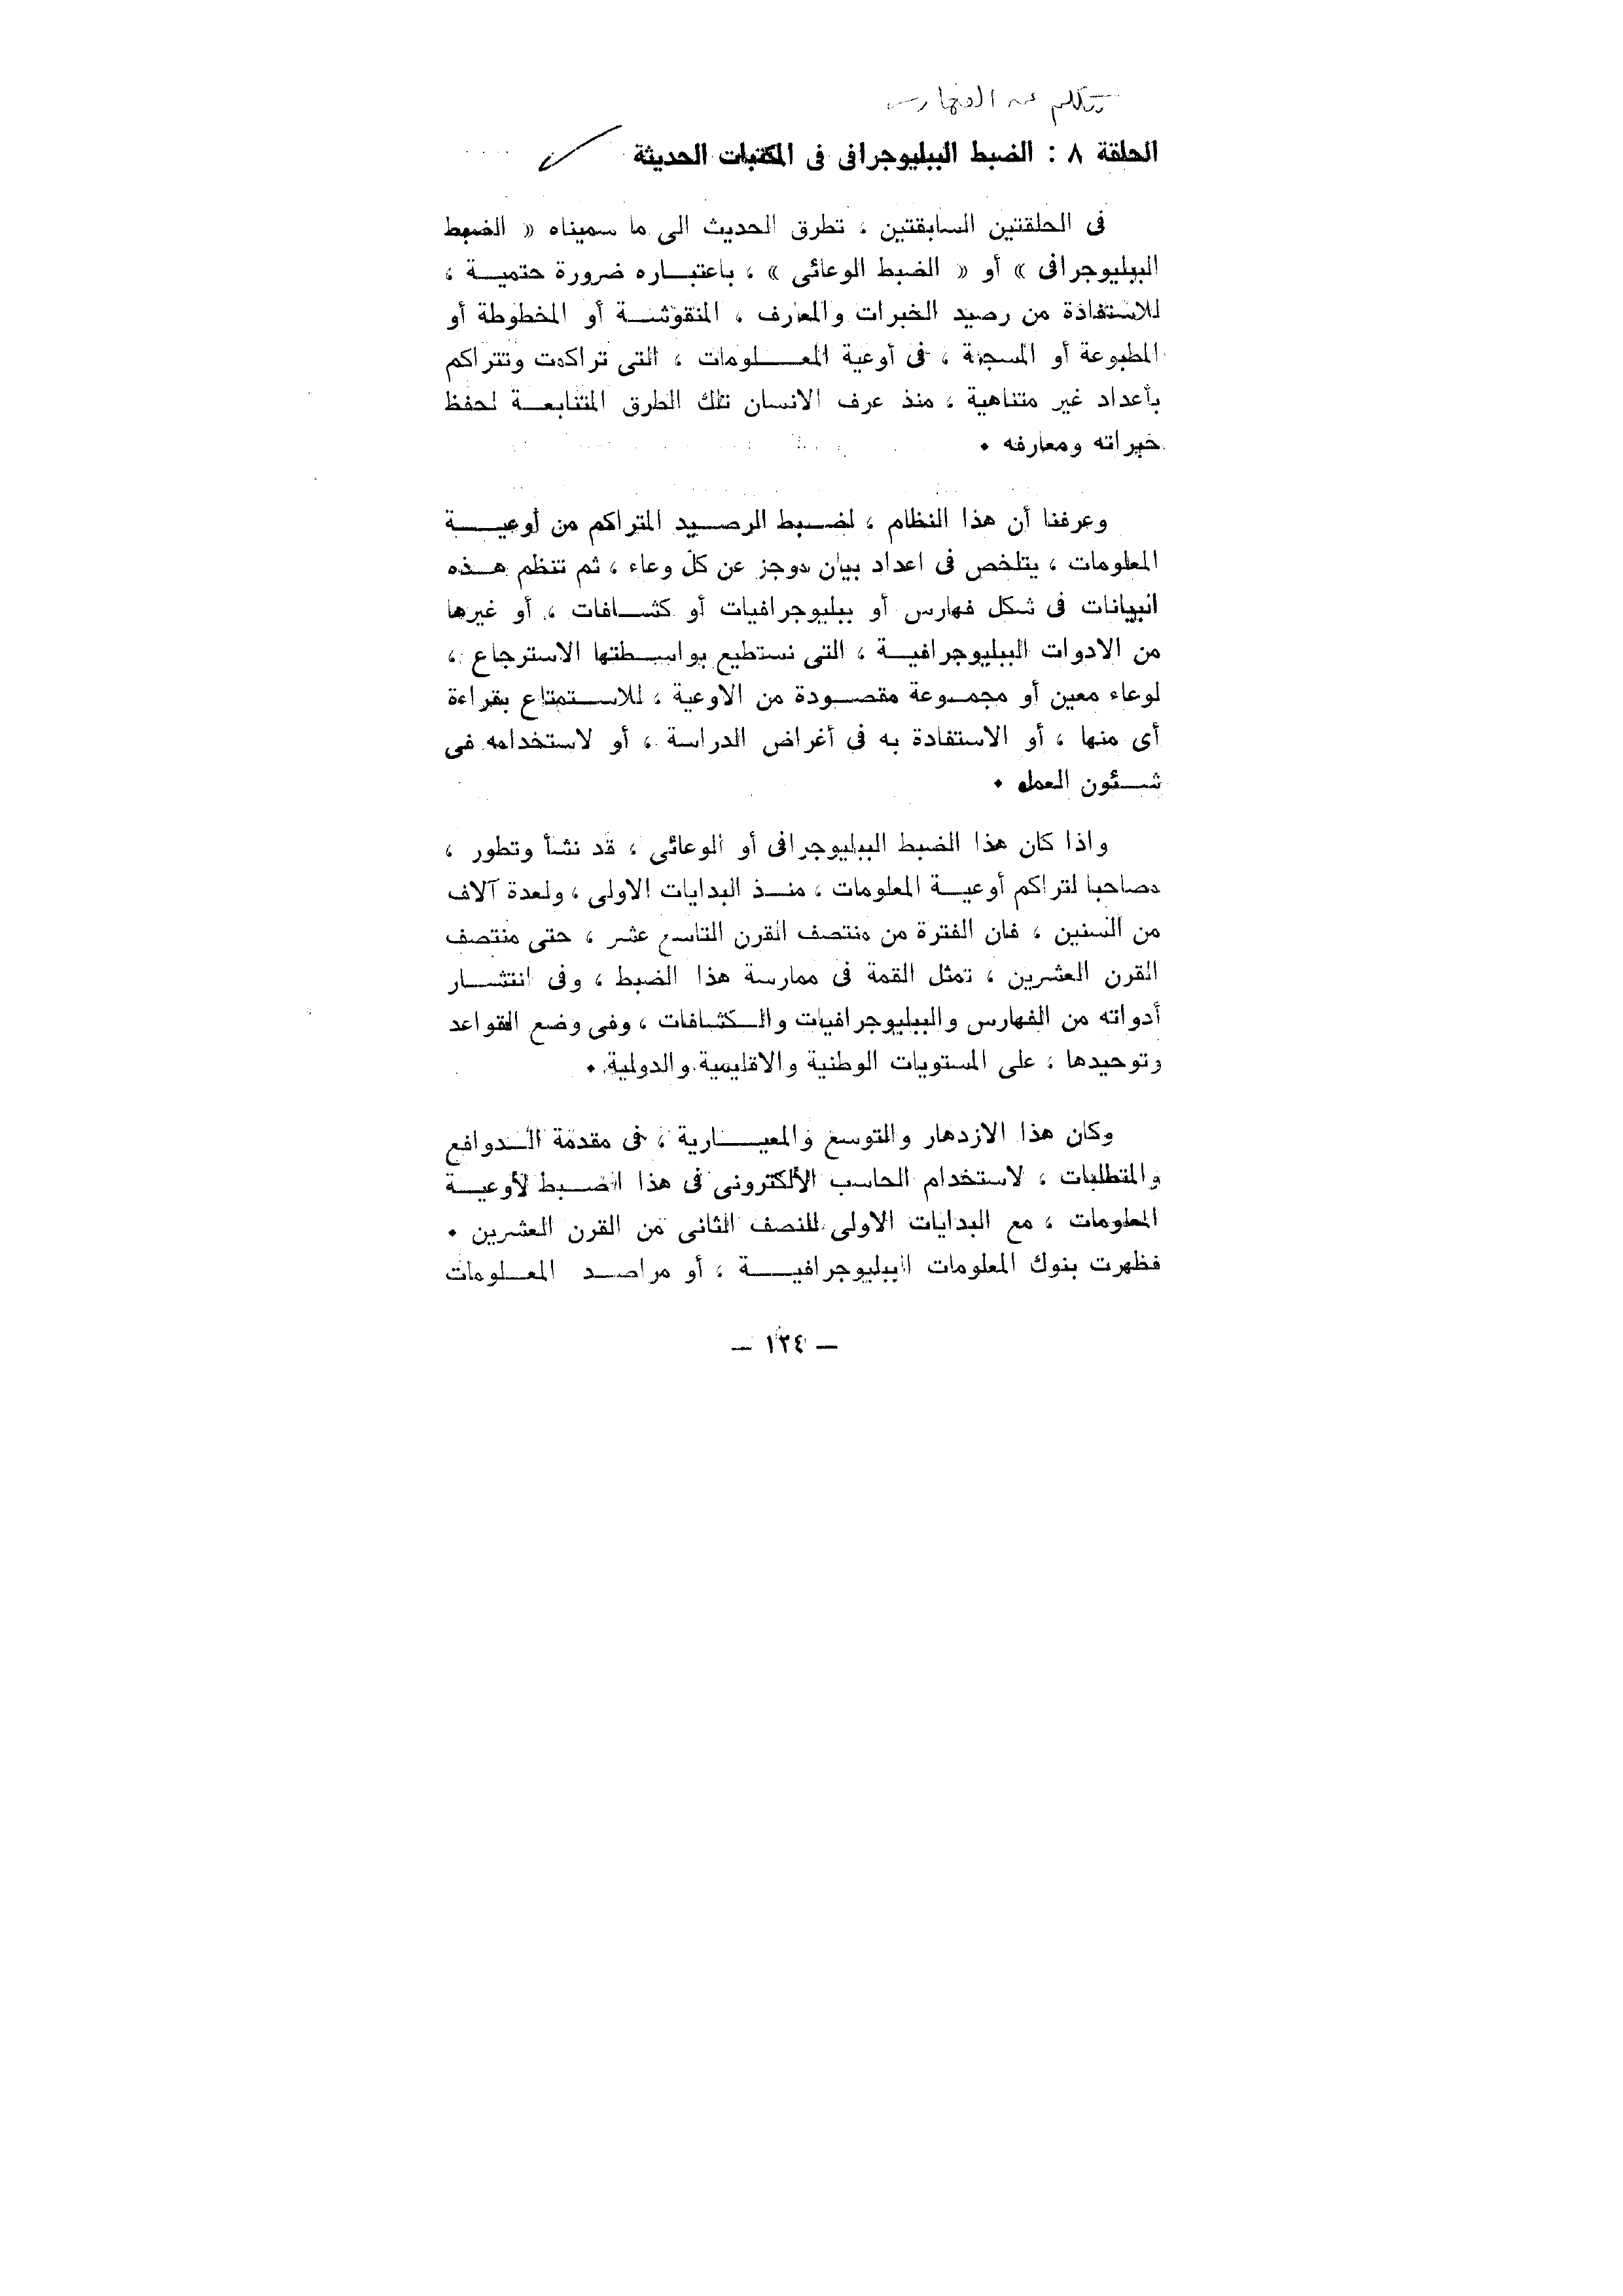 تتكلم عن الفهارس
الحلقة ٨ : الضبط الببليوجرافى فى المكتبات الحديثة
فى الحلقتين السابقتين ، تطرق الحديث الى ما سميناه « الضبط
الببليوجرافى » أو « الضبط الوعائى » ، باعتباره ضرورة حتمية ،
للاستفادة من رصيد الخبرات والمعارف ، المنقوشة أو المخطوطة أو
المطبوعة أو المسجلة ، فى أوعية المعلومات ، التى تراكمت وتتراكم
بأعداد غير متناهية ، منذ عرف الانسان تلك الطرق المتتابعة لحفظ
خبراته ومعارفه .
وعرفنا أن هذا النظام ، لضبط الرصيد المتراكم من أوعية
المعلومات ، يتلخص فى اعداد بيان موجز عن كل وعاء ، ثم تنظم هذه
البيانات فى شكل فهارس أو ببليوجرافيات أو كشافات ، أو غيرها
من الادوات الببليوجرافية ، التى نستطيع بواسطتها الاسترجاع ،
لوعاء معين أو مجموعة مقصودة من الاوعية ، للاستمتاع بقراءة
أى منها ، أو الاستفادة به فى أغراض الدراسة ، أو لاستخدامه فى
شئون العمل .
واذا كان هذا الضبط الببليوجرافى أو الوعائى ، قد نشأ وتطور ،
مصاحبا لتراكم أوعية المعلومات ، منذ البدايات الاولى ، ولعدة آلاف
من السنين ، فان الفترة من منتصف القرن التاسع عشر ، حتى منتصف
القرن العشرين ، تمثل القمة فى ممارسة هذا الضبط ، وفى انتشار
أدواته من الفهارس والببليوجرافيات والكشافات ، وفى وضع القواعد
وتوحيدها ، على المستويات الوطنية والاقليمية والدولية .
وكان هذا الازدهار والتوسع والمعيارية ، فى مقدمة الدوافع
والمتطلبات ، لاستخدام الحاسب الألكترونى فى هذا الضبط لأوعية
المعلومات ، مع البدايات الاولى للنصف الثانى من القرن العشرين .
فظهرت بنوك المعلومات الببليوجرافية ، أو مراصد المعلومات
— ١٣٤ —